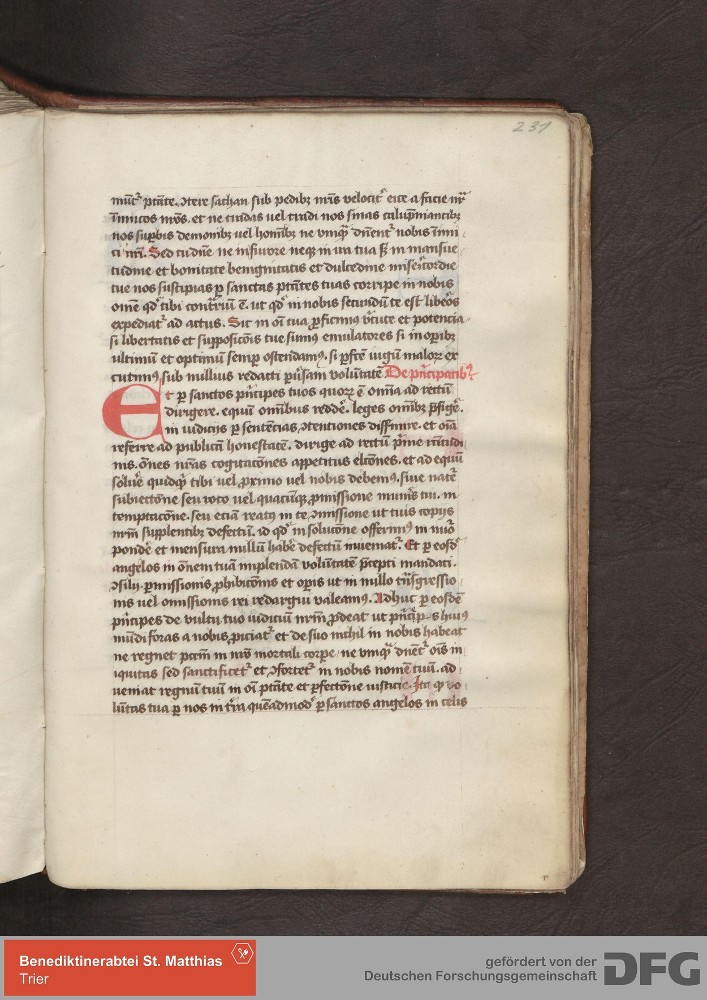 231
munt͛ ptāte. ɔtere sathan sub pedibꝫ nr̄is velocit͛ eice a facie nr̄
īimicos nr̄os. et ne tradas uel tradi nos sinas calūpniantibꝫ
nos suꝑbis demonibꝫ uel hom̄ibꝫ ne vmqͣꝫ dn̄ent͛ nobis inimi
ci nr̄i. Sed tu dn̄e ne in furore neqꝫ in ira tua sꝫ in mansue
tudine et bonitate benignitatis et dulcedine mīsericordie
tue nos suscipias ꝑ sanctas ptātes tuas corripe in nobis
om̄e qd͛ tibi contͣriū ē. ut qd͛ in nobis secundū te est lib̄eos
expediat͛ ad actus. Sic in oī tua ꝑficimꝰ v͛tute et potencia
si libertatis et supposicōis tue simus emulatores si in oꝑibꝫ
ultimū et optimū semꝑ ostendamꝰ. si
cutimꝰ sub nullius redacti volūtatē De pͥncipatibꝫ
Et ꝑ sanctos pͥncipes tuos quoꝝ ē om̄ia ad rectū
dirigere. equū om̄ibus redde͛. leges om̄ibꝫ p̄fige͛.
in iudicijs ꝑ sentēcias, ɔtentiones diffinire. et oīa
referre ad publicā honestatē. dirige ad rectū
nis. ōnes nr̄as cogitacōnes appetitus elcōnes. et ad equū
solue͛ quidqͥd tibi uel ꝓximo uel nobis debemꝰ. siue
subiectōne seu voto uel quacūqꝫ ꝓmissione munīs tui. in
temptacōne. seu eciā reatu in te ɔmissione ut tuis copijs
nr̄m supplentibꝫ defectū. id qd͛ in solucōne offerimꝰ in nūo
ponde͛ et mensura nullū habe͛ defectū inueniat͛. Et ꝑ eosdē
angelos in ōnem tuā implendā volūtatē p̄cepti mandati.
ɔsilij. ꝑmissionis ꝓhibicōnis et oꝑis ut in nullo tͣnsgressio
nis uel omissionis rei redargui valeamꝰ. Adhuc ꝑ eosdē
pͥncipes de vultu tuo iudiciū nr̄m ꝓdeat ut pͥnceps huiꝰ
mūdi foras a nobis ꝓiciat͛ et de suo nichil in nobis habeat
ne regnet pctm̄ in nr̄o mortali corpe. ne vmqͣꝫ dn̄et͛ oīs in
iquitas sed sanctificet͛ et ɔfortet͛ in nobis nomē tuū. ad
ueniat regnū tuū in oī ptāte et ꝑfectōne iusticie. Ita qꝫ vo
lūtas tua ꝑ nos in t͛ra quēadmod͛ ꝑ sanctos angelos in celis
Benediktinerabtei St. Matthias
Trier
gefördert von der
Deutschen Forschungsgemeinschaft
DFG